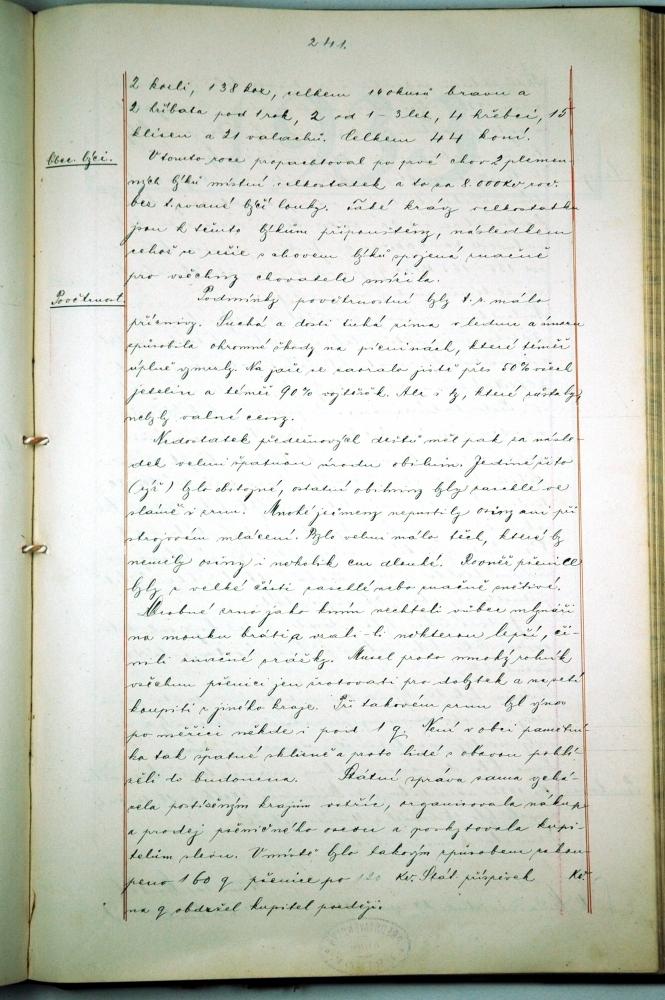 241.
2 kozli, 138 koz, celkem 140 kusů bravu a
2 hříbata pod 1 rok, 2 od 1-3 let, 4 hřebci, 15
klisen a 21 valachů. Celkem 44 koní.
Obec. býci.
V tomto roce propachtoval po prvé chov 2 plemen-
ných býků místní velkostatek a to za 8.000 Kč roč.
bez t. zvané býčí louky. Také krávy velkostatku
jsou k těmto býkům připouštěny, následkem
čehož se režie s chovem býků spojená značně
pro všechny chovatele snížila.
Povětrnost.
Podmínky povětrnostní byly t. r. málo
příznivy. Suchá a dosti tuhá zima v lednu a únoru
způsobila ohromné škody na pícninách, které téměř
úplně vymrzly. Na jaře se zaoralo jistě přes 50% všech
jetelin a téměř 90% vojtěšek. Ale i ty, které zůstaly,
neměly valné ceny.
Nedostatek předzimových dešťů měl pak za násle-
dek velmi špatnou úrodu obilnin. Jediné žito
(rýž) bylo obstojné, ostatní obilniny byly zaschlé ve
slámě i zrnu. Mnohé ječmeny nepustily osiny ani při
strojovém mlácení. Bylo velmi málo těch, které by
neměly osiny i několik cm dlouhé. Rovněž pšenice
byly z velké části zaschlé nebo značně snětivé.
Drobné zrno jako kmín nechtěli vůbec mlynáři
na mouku bráti a vzali-li některou lepší, či-
nili značné srážky. Musel proto mnohý rolník
všechnu pšenici jen šrotovati pro dobytek a na setí
koupiti z jiného kraje. Při takovém zrnu byl výnos
po měřici někde i pod 1 q. Není v obci pamětní-
ka tak špatné sklizně a proto lidé s obavou pohlí-
želi do budoucna. Státní správa sama vychá-
zela postiženým krajům vstříc, organisovala nákup
a prodej pšeničného osevu a poskytovala kupi-
telům slevu. V místě bylo takovým způsobem zakou-
peno 160 q pšenice po 120 Kč. Stát. příspěvek Kč
na q obdržel kupitel později.